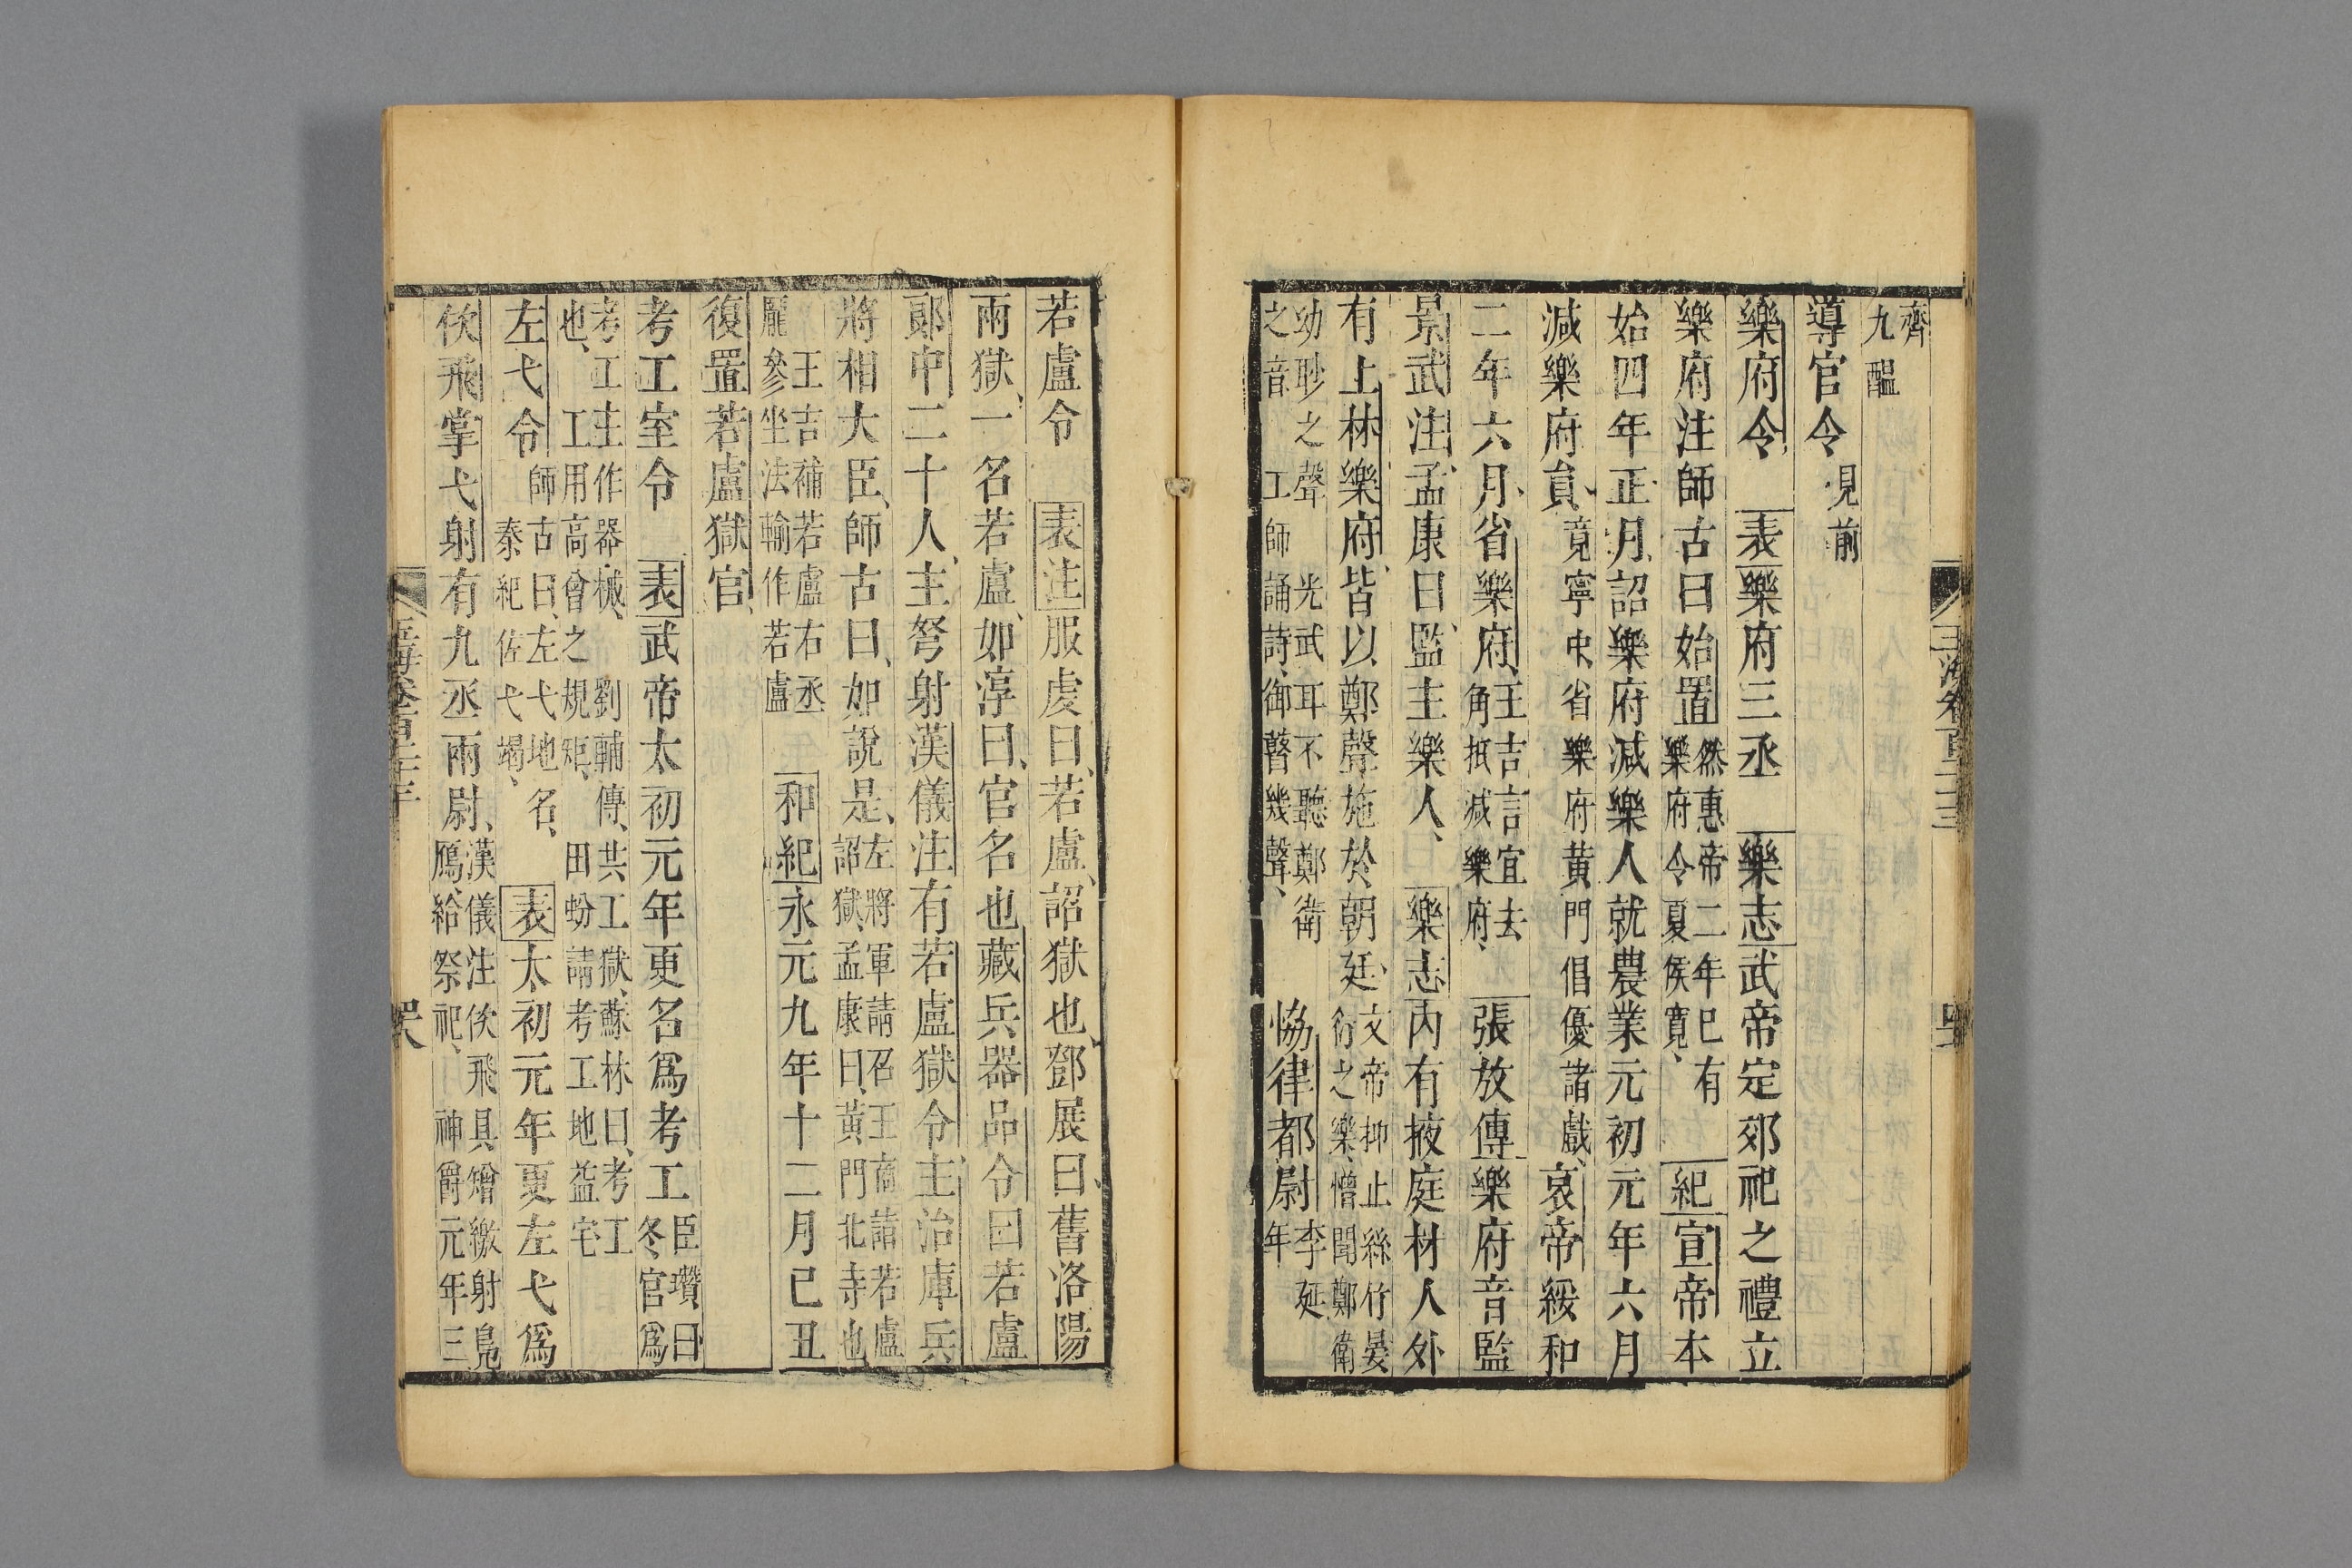 齊
九醖
導官令 見前
樂府令 表樂府三丞 樂志武帝定郊祀之禮立
樂府注師古曰始置 然惠帝二年已有
樂府令夏侯寬 紀宣帝本
始四年正月詔樂府減樂人就農業元初元年六月
減樂府員 竟寧中省樂府黃門倡優諸戲 哀帝綏和
二年六月省樂府 王吉言宜去
角抵減樂府 張放傳樂府音監
景武注孟康曰監主樂人 樂志內有掖庭材人外
有上林樂府皆以鄭聲施於朝廷 文帝抑止絲竹晏
衎之樂憎聞鄭衛
幼眇之聲 光武耳不聽鄭衛
之音 工師誦詩御瞽幾聲 協律都尉 李延
年
若盧令 表注服虔曰若盧詔獄也鄧展曰舊洛陽
兩獄一名若盧如淳曰官名也藏兵器品令曰若盧
郎中二十人主弩射漢儀注有若盧獄令主治庫兵
將相大臣師古曰如說是 左將軍請召王商詣若盧
詔獄孟康曰黃門北寺也
王吉補若盧右丞
龐參坐法輸作若盧 和紀永元九年十二月己丑
復置若盧獄官
考工室令 表武帝太初元年更名為考工 臣瓚曰
冬官為
考工主作器械 劉輔傳共工獄蘇林曰考工
也 工用高曾之規矩 田蚡請考工地益宅
左弋令 師古曰左弋地名
秦紀佐弋竭 表太初元年更左弋為
佽飛掌弋射有九丞兩尉 漢儀注佽飛具矰繳射鳧
鴈給祭祀 神爵元年三